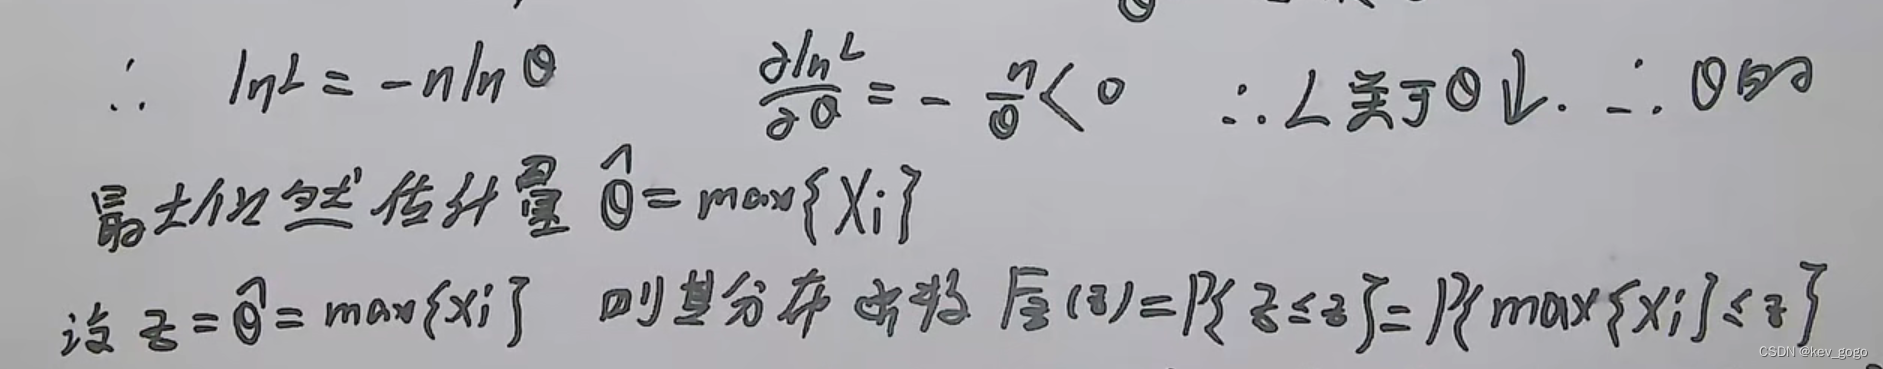 ∴ lnL = -n ln θ ∂lnL/∂θ = - n/θ < 0 ∴ L关于θ↓. ∴ θ的
最大似然估计量 θ̂ = max{Xi}
设 z = θ̂ = max{xi} 则其分布函数 Fz(z) = P{z≤z} = P{max{xi}≤z}
CSDN @kev_gogo